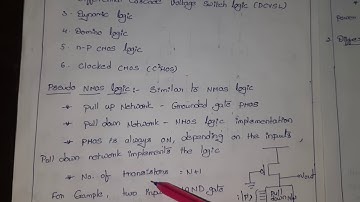 Differential Cascade Voltage Switch Logic (DCVSL)
3. Dynamic Logic
4. Domino Logic
5. n-p CMOS logic
6. Clocked CMOS (C²MOS)
Pseudo NMOS logic:- Similar to NMOS logic
* Pull up Network - Grounded gate PMOS
* Pull down Network - NMOS logic implementation
* PMOS is always ON, depending on the inputs
Pull down network implements the logic
* No. of transistors = N+1
For Example, two NAND gate
out
Pull
down